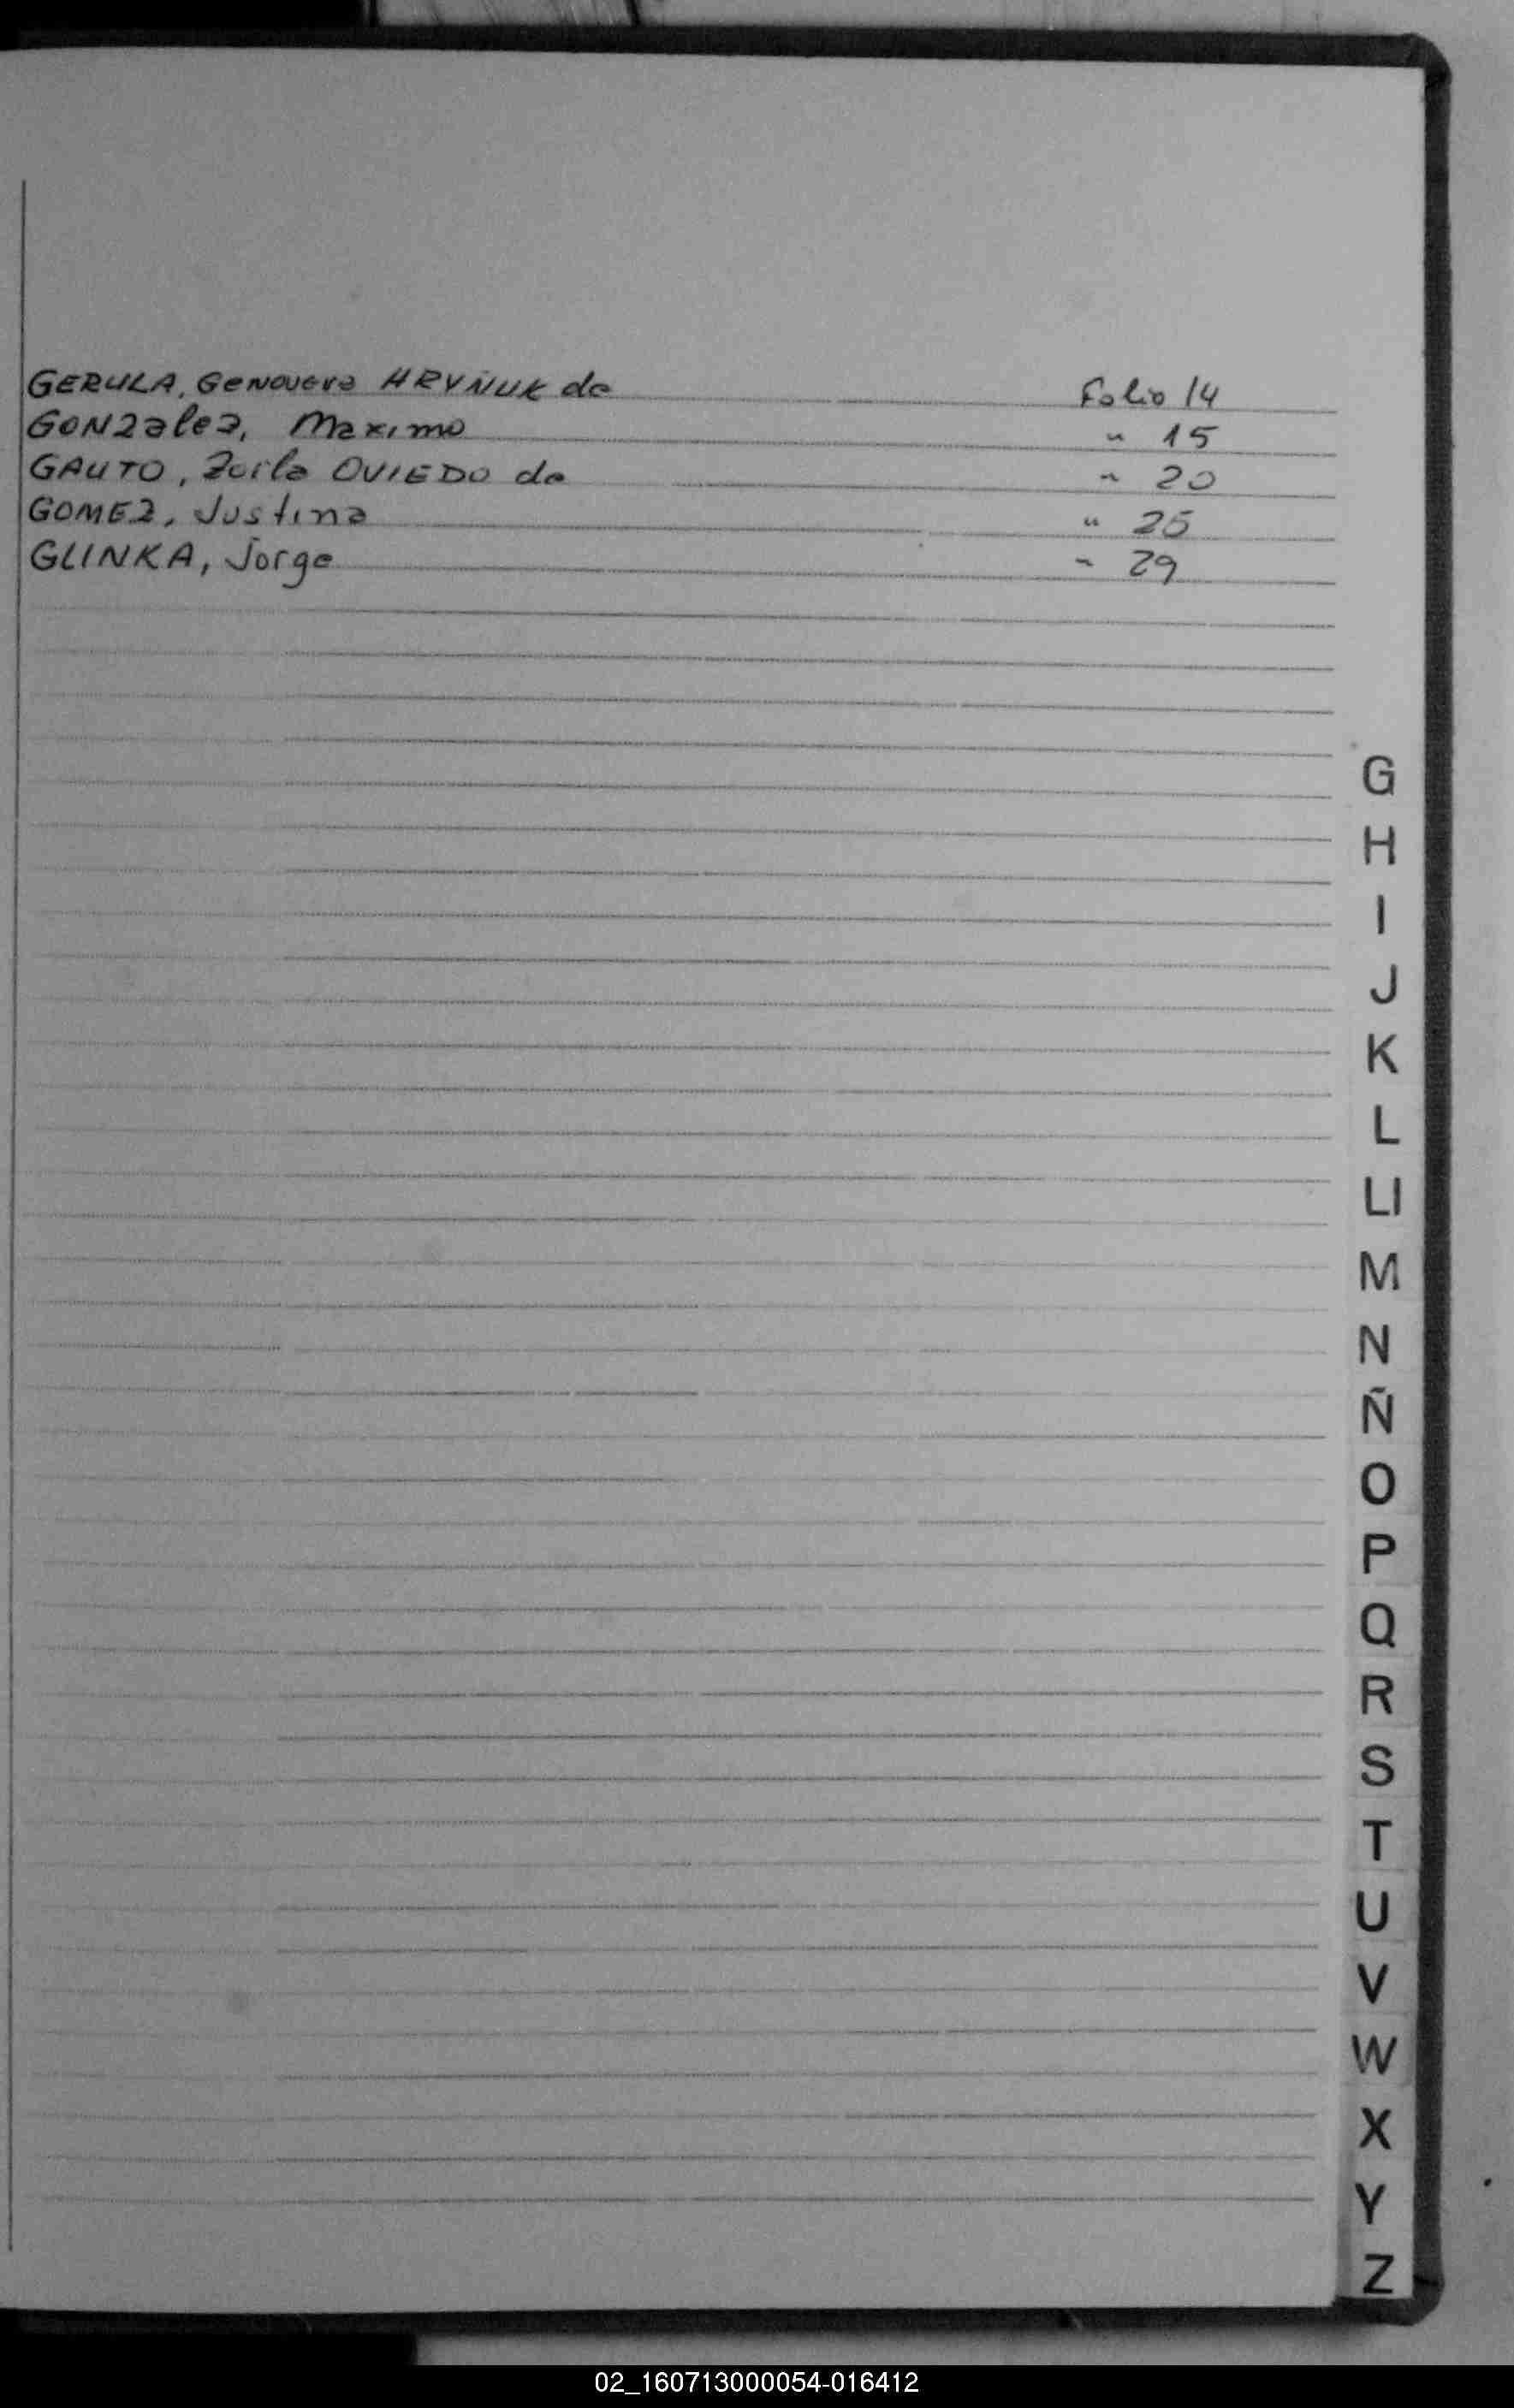 GERULA, Genoveva HRYÑUK de Folio 14
GONZalez, Maximo " 15
GAUTO, Zoila OVIEDO de " 20
GOMEZ, Justina " 25
GLINKA, Jorge " 29
G
H
I
J
K
L
Ll
M
N
Ñ
O
P
Q
R
S
T
U
V
W
X
Y
Z
02_160713000054-016412